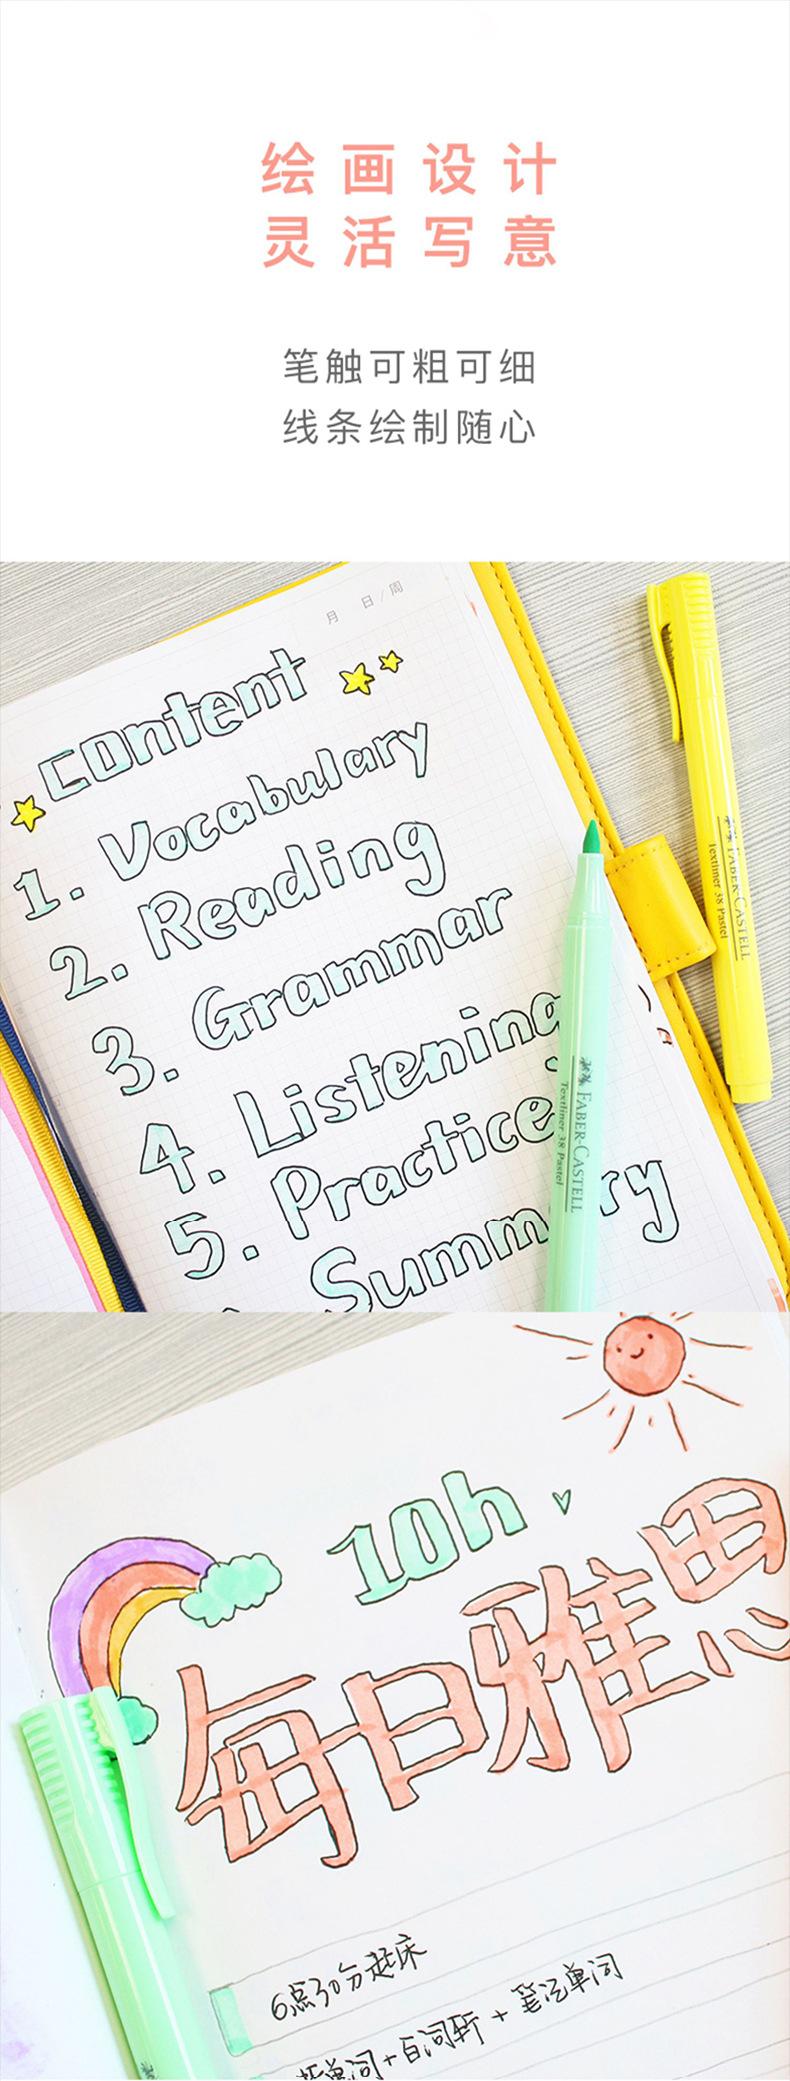 绘画设计
灵活写意
笔触可粗可细
线条绘制随心
月 日/周
Content
1. Vocabulary
2. Reading
3. Grammar
4. Listening
5. Practice
FABER-CASTELL
Textliner 38 Pastel
FABER-CASTELL
Textliner 38 Pastel
10h
每日雅思
6点30分起床